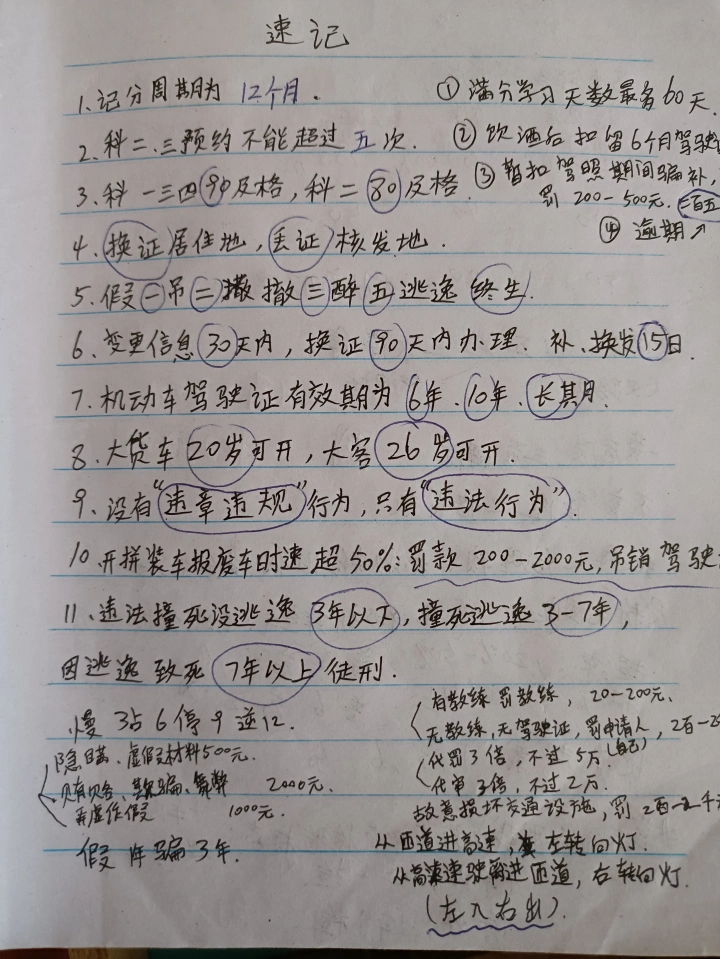 速记
1.记分周期为 12个月.
① 满分学习天数最多60天.
2.科二.三预约不能超过五次.
② 饮酒后扣留6个月驾驶
3.科一三四90及格,科二80及格.
③ 暂扣驾照期间骗补,
罚 200-500元.
④ 逾期↗
4.换证居住地,丢证核发地.
5.假一吊二撤三醉五逃逸终生.
6、变更信息30天内,换证90天内办理. 补、换发15日.
7.机动车驾驶证有效期为6年、10年、长期.
8.大货车20岁可开,大客26岁可开.
9.没有"违章违规"行为,只有"违法行为".
10.开拼装车报废车时速超50%:罚款200-2000元,吊销驾驶
11、违法撞死没逃逸3年以下,撞死逃逸3-7年,
因逃逸致死7年以上徒刑.
慢3占6停9逆12.
有教练罚教练, 20-200元.
无教练,无驾驶证,罚申请人,2百-
代罚3倍,不过5万.(自己)
代审3倍,不过2万.
隐瞒、虚假材料500元.
贿、欺骗、舞弊 2000元.
弄虚作假 1000元.
假1年骗3年.
故意损坏交通设施,罚2百-2千
从匝道进高速,左转向灯.
从高速驶离进匝道,右转向灯.
(左入右出).